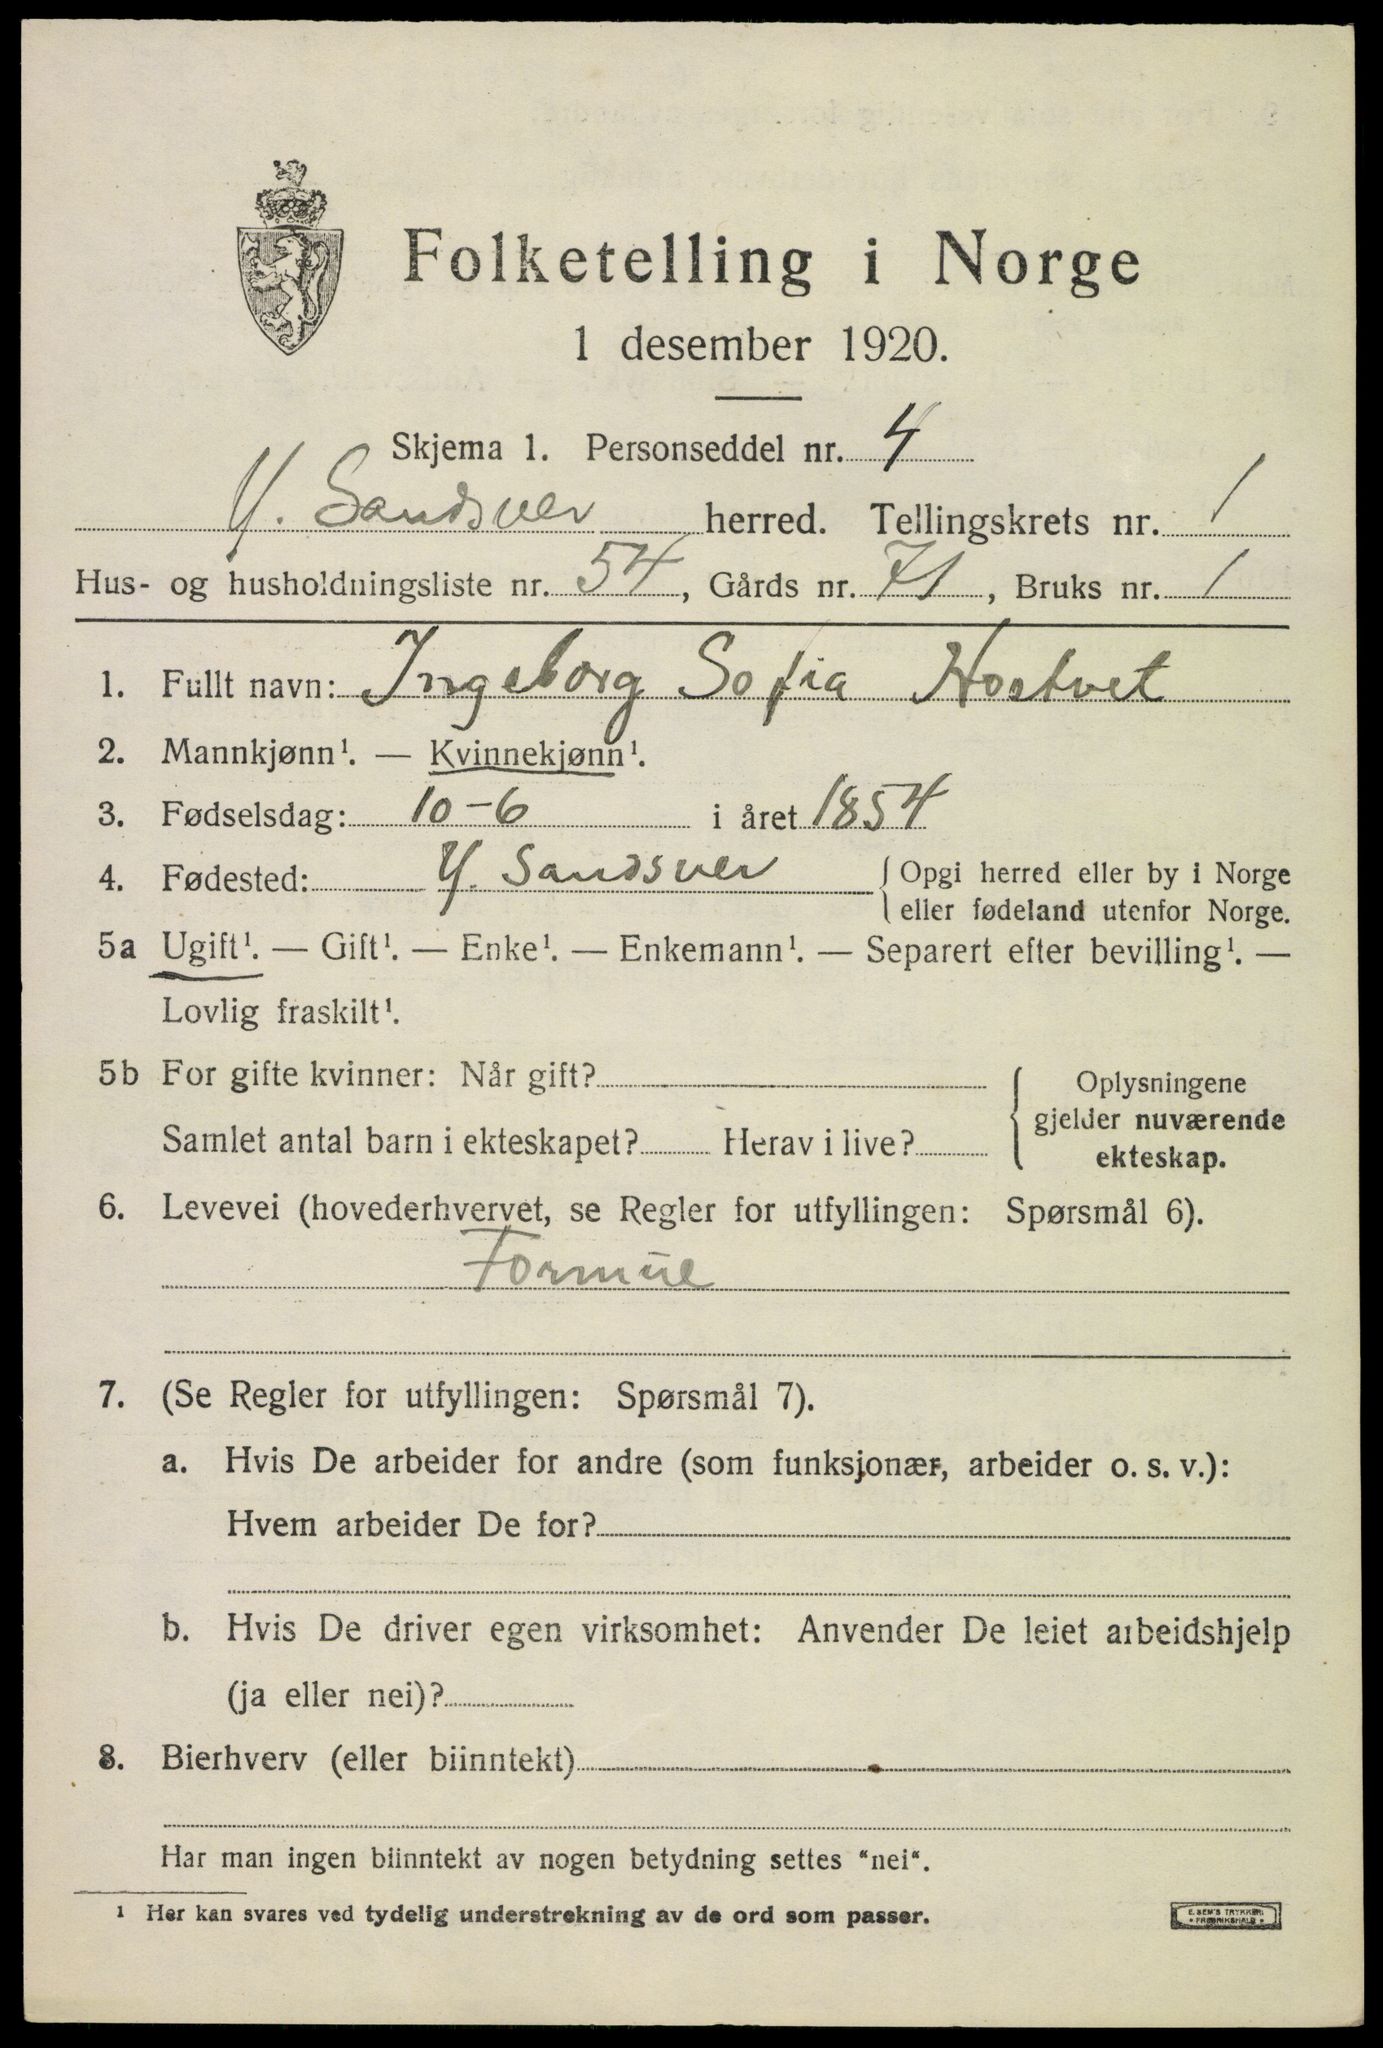 Folketelling i Norge
1 desember 1920.
Skjema 1. Personseddel nr. 4
Y. Sandsver herred. Tellingskrets nr. 1
Hus- og husholdningsliste nr. 54, Gårds nr. 71, Bruks nr. 1
1. Fullt navn: Ingeborg Sofia Hostvet
2. Mannkjønn¹. — Kvinnekjønn¹.
3. Fødselsdag: 10-6 i året 1854
4. Fødested: Y. Sandsver { Opgi herred eller by i Norge
eller fødeland utenfor Norge.
5a Ugift¹. — Gift¹. — Enke¹. — Enkemann¹. — Separert efter bevilling¹. —
Lovlig fraskilt¹.
5b For gifte kvinner: Når gift?
Samlet antal barn i ekteskapet? Herav i live?
Oplysningene
gjelder nuværende
ekteskap.
6. Levevei (hovederhvervet, se Regler for utfyllingen: Spørsmål 6).
Formue
7. (Se Regler for utfyllingen: Spørsmål 7).
a. Hvis De arbeider for andre (som funksjonær, arbeider o. s. v.):
Hvem arbeider De for?
b. Hvis De driver egen virksomhet: Anvender De leiet arbeidshjelp
(ja eller nei)?
8. Bierhverv (eller biinntekt)
Har man ingen biinntekt av nogen betydning settes "nei".
¹ Her kan svares ved tydelig understrekning av de ord som passer.
E. SEM'S TRYKKERI
• FREDRIKSHALD •